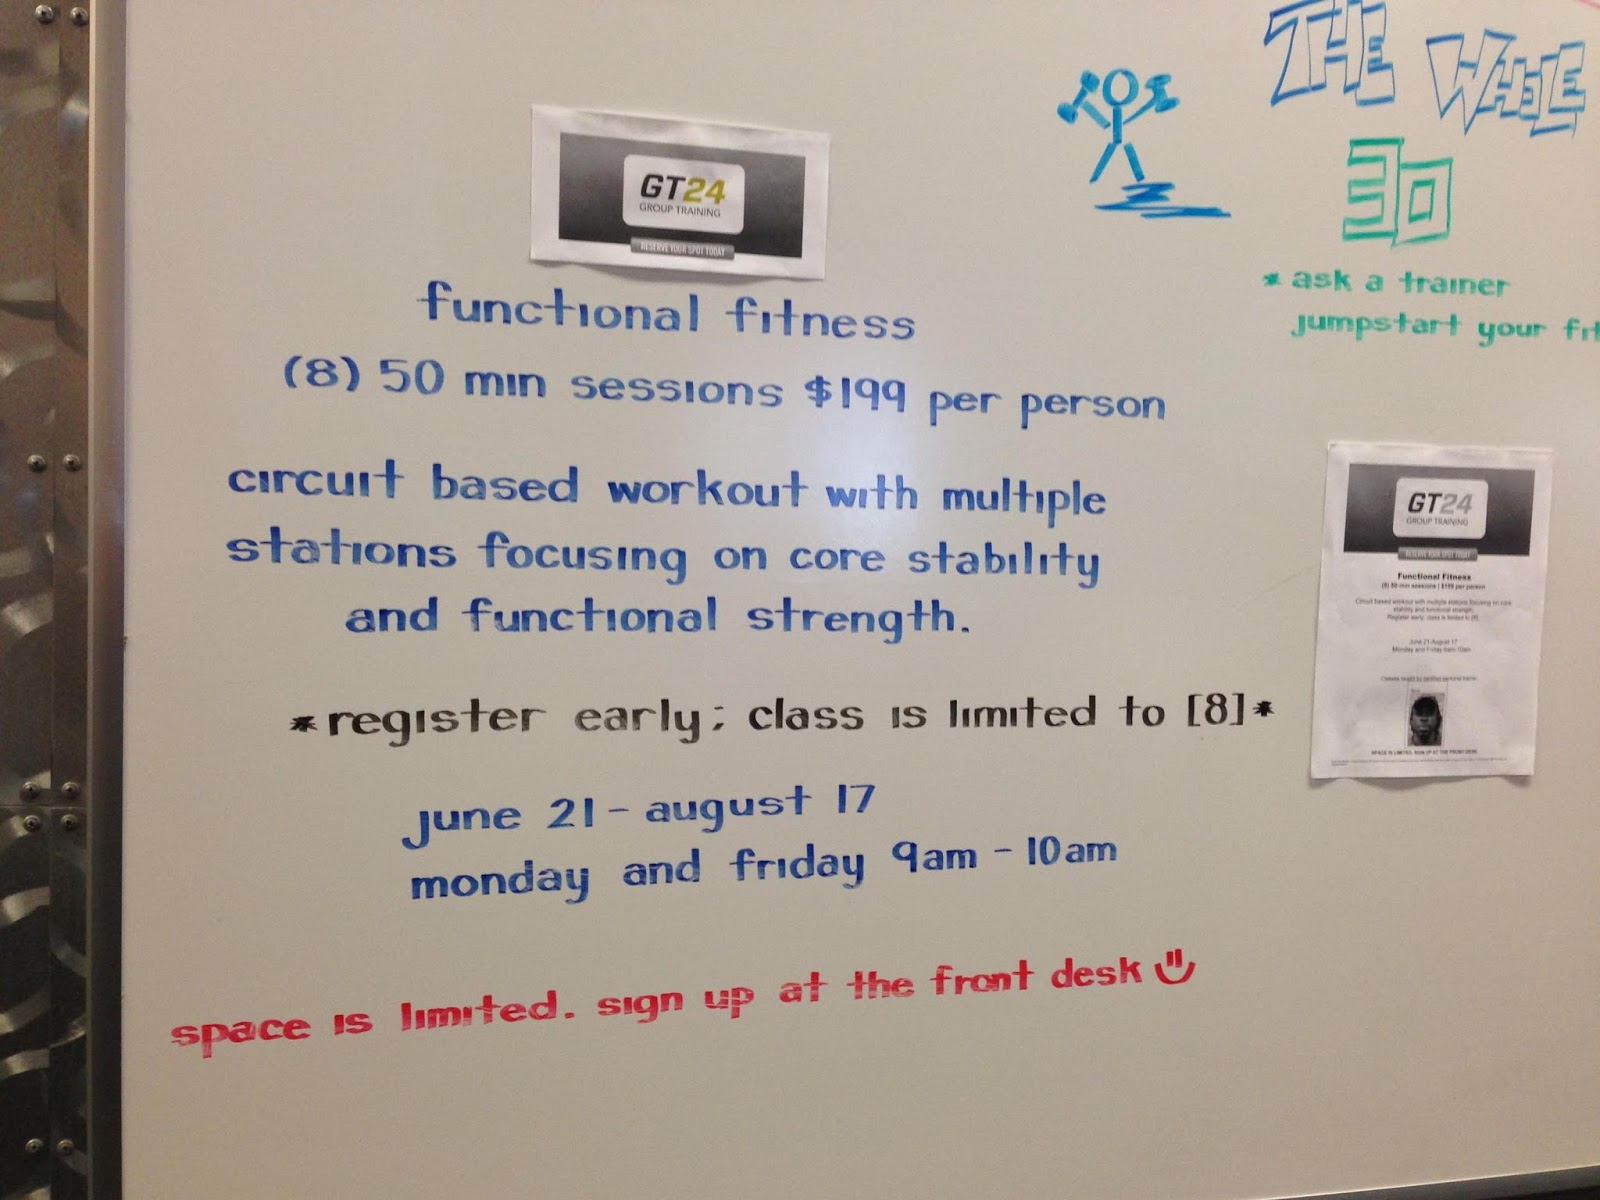 GT24
GROUP TRAINING
RESERVE YOUR SPOT TODAY
functional fitness
(8) 50 min sessions $199 per person
circuit based workout with multiple
stations focusing on core stability
and functional strength.
*register early; class is limited to [8]*
june 21 - august 17
monday and friday 9am - 10am
space is limited. sign up at the front desk
THE WHOLE
30
* ask a trainer
jumpstart your fit
GT24
GROUP TRAINING
RESERVE YOUR SPOT TODAY
Functional Fitness
(8) 50-min sessions | $199 per person
Circuit based workout with multiple stations focusing on core
stability and functional strength.
Register early; class is limited to [8].
June 21-August 17
Monday and Friday 9am-10am
SPACE IS LIMITED. SIGN UP AT THE FRONT DESK